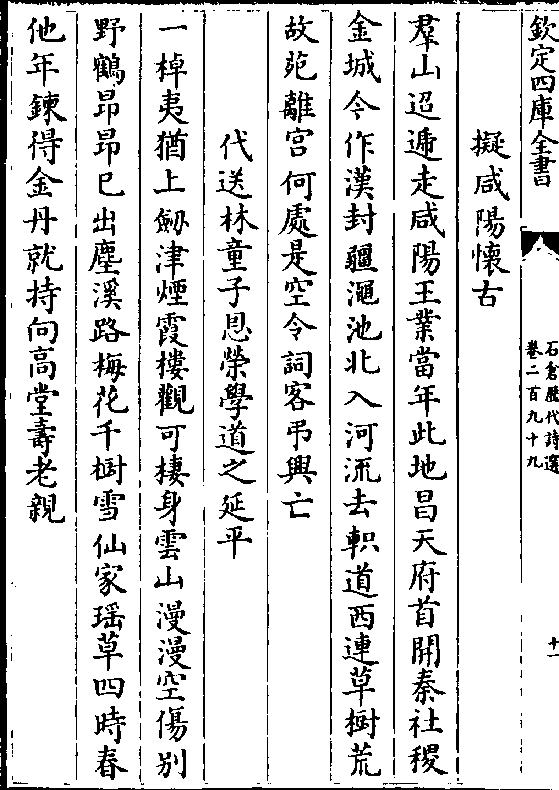 欽定四庫全書
石倉歷代詩選
卷二百九十九
十一
擬咸陽懷古
羣山迢遞走咸陽王業當年此地昌天府首開秦社稷
金城今作漢封疆澠池北入河流去軹道西連草樹荒
故苑離宮何處是空令詞客弔興亡
代送林童子思榮學道之延平
一棹夷猶上劒津煙霞樓觀可棲身雲山漫漫空傷别
野鶴昂昂已出塵溪路梅花千樹雪仙家瑶草四時春
他年鍊得金丹就持向高堂壽老親